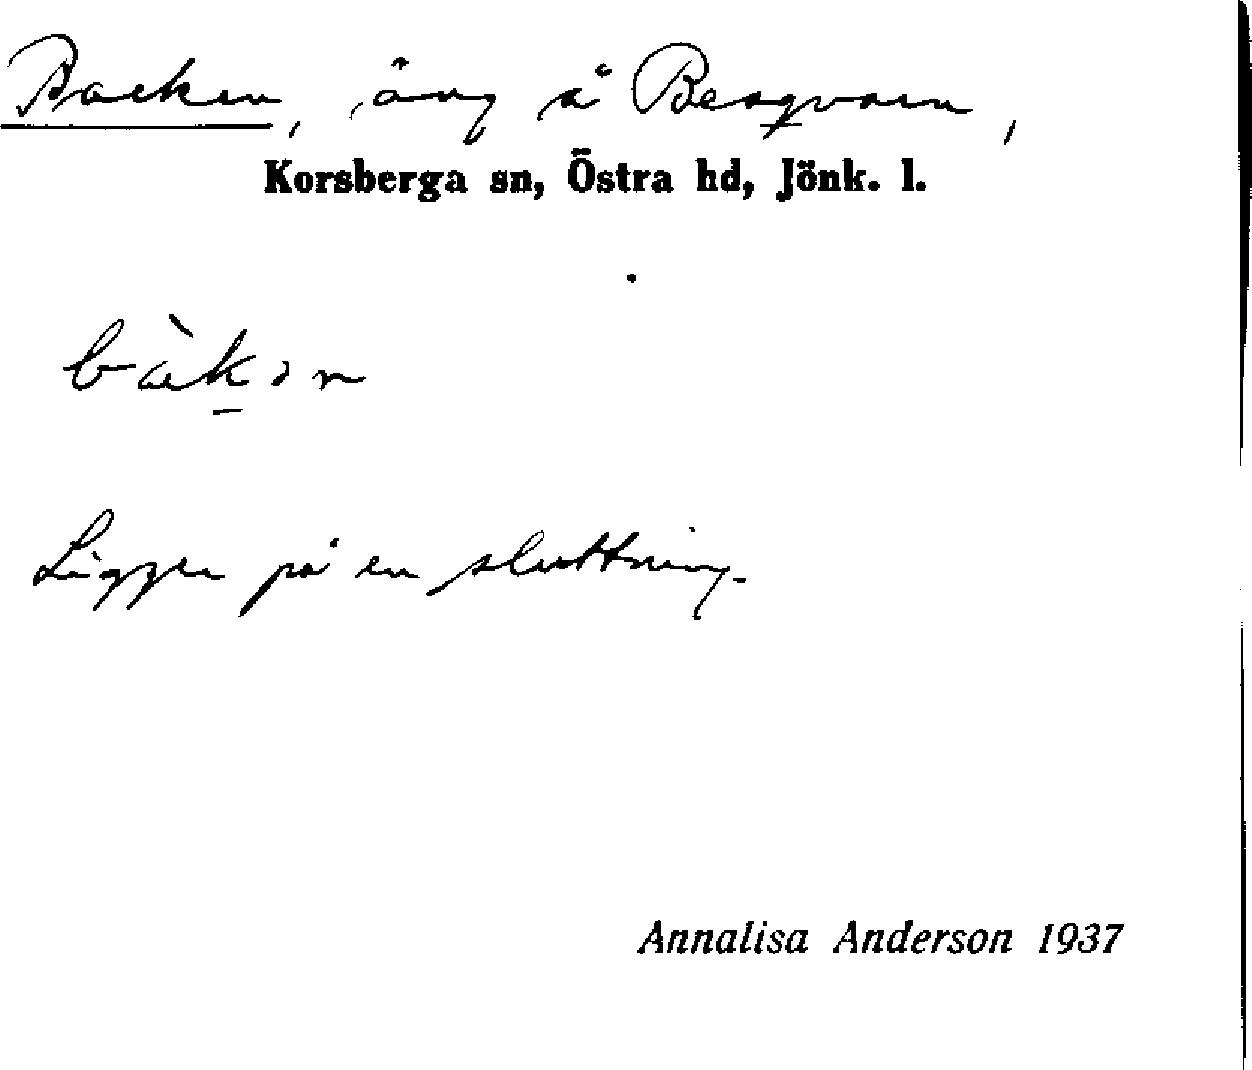 Backen, äng å Bergqvarn,
Korsberga sn, Östra hd, Jönk. l.
bàkən
Ligger på en sluttning.
Annalisa Anderson 1937